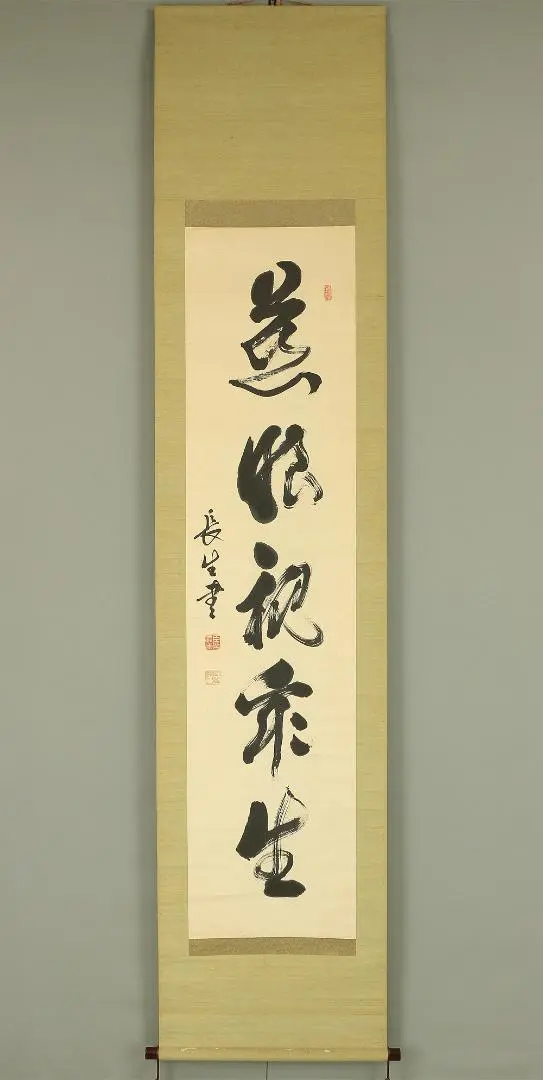 慈眼視衆生
長生書